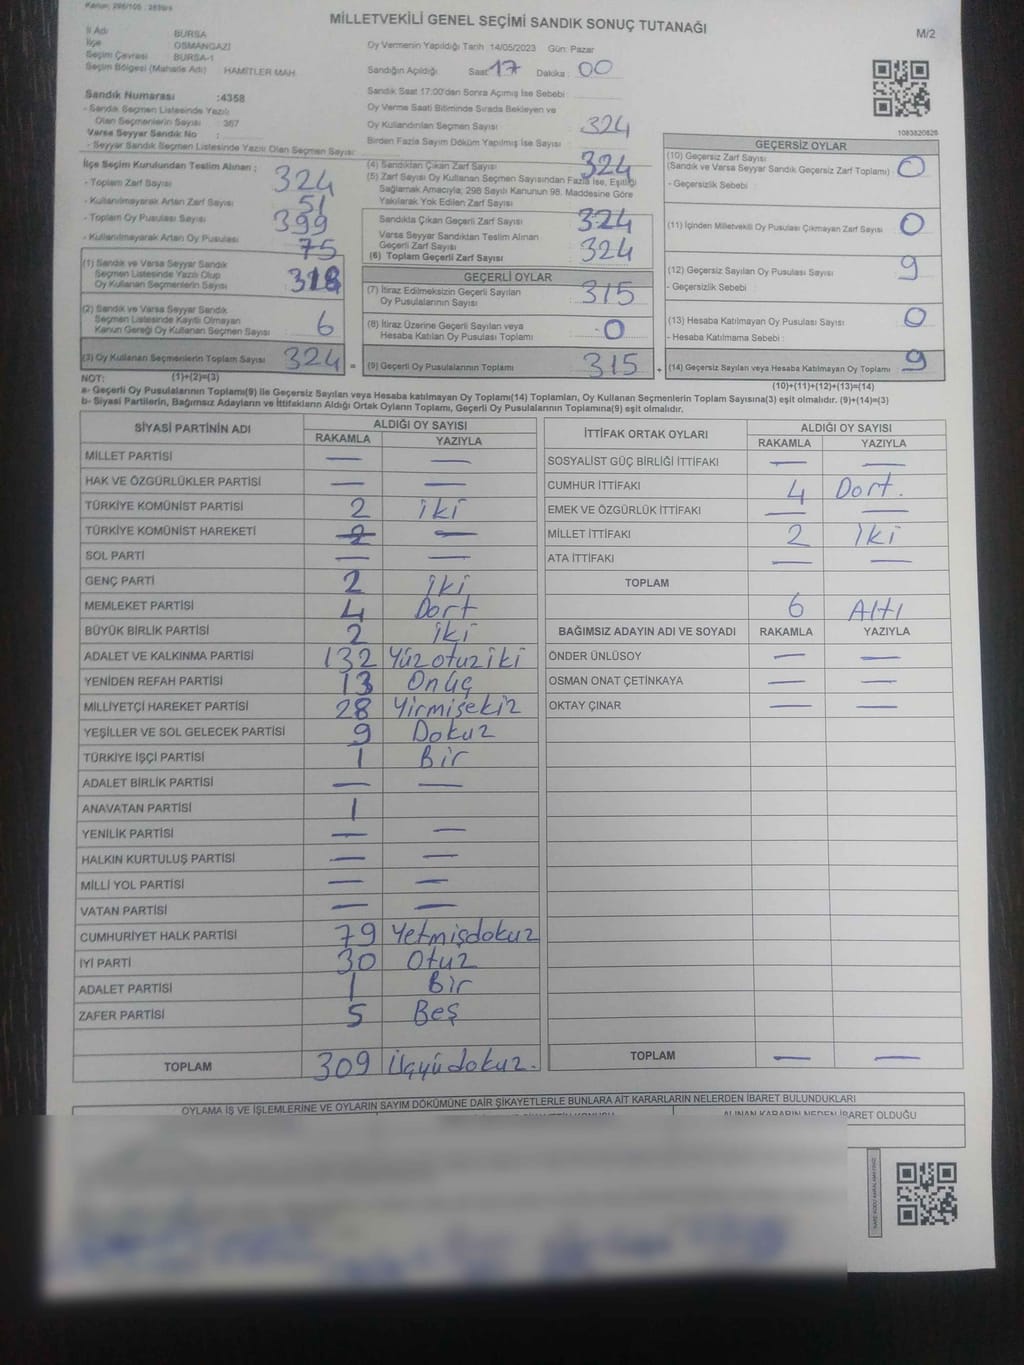 MİLLETVEKİLİ GENEL SEÇİMİ SANDIK SONUÇ TUTANAĞI
M/2
İl Adı BURSA
İlçe OSMANGAZİ
Seçim Çevresi BURSA-1
Seçim Bölgesi (Mahalle Adı) HAMİTLER MAH.
Oy Vermenin Yapıldığı Tarih 14/05/2023 Gün: Pazar
Sandığın Açıldığı Saat 17 Dakika : 00
Sandık Saat 17:00'den Sonra Açımış İse Sebebi :
Sandık Numarası :4358
- Sandık Seçmen Listesinde Yazılı
Olan Seçmenlerin Sayısı : 367
Varsa Seyyar Sandık No :
- Seyyar Sandık Seçmen Listesinde Yazılı Olan Seçmen Sayısı:
Oy Verme Saati Bitiminde Sırada Bekleyen ve
Oy Kullandırılan Seçmen Sayısı : 324
Birden Fazla Sayım Döküm Yapılmış İse Sayısı :
1083820826
İlçe Seçim Kurulundan Teslim Alınan ;
- Toplam Zarf Sayısı : 324
- Kullanılmayarak Artan Zarf Sayısı : 51
- Toplam Oy Pusulası Sayısı : 399
- Kullanılmayarak Artan Oy Pusulası : 75
(1) Sandık ve Varsa Seyyar Sandık
Seçmen Listesinde Yazılı Olup
Oy Kullanan Seçmenlerin Sayısı : 318
(2) Sandık ve Varsa Seyyar Sandık
Seçmen Listesinde Kayıtlı Olmayan
Kanun Gereği Oy Kullanan Seçmen Sayısı : 6
(3) Oy Kullanan Seçmenlerin Toplam Sayısı : 324
(1)+(2)=(3)
(4) Sandıktan Çıkan Zarf Sayısı : 324
(5) Zarf Sayısı Oy Kullanan Seçmen Sayısından Fazla İse, Eşitliği
Sağlamak Amacıyla; 298 Sayılı Kanunun 98. Maddesine Göre
Yakılarak Yok Edilen Zarf Sayısı :
Sandıkta Çıkan Geçerli Zarf Sayısı : 324
Varsa Seyyar Sandıktan Teslim Alınan
Geçerli Zarf Sayısı
(6) Toplam Geçerli Zarf Sayısı : 324
GEÇERLİ OYLAR
(7) İtiraz Edilmeksizin Geçerli Sayılan
Oy Pusulalarının Sayısı : 315
(8) İtiraz Üzerine Geçerli Sayılan veya
Hesaba Katılan Oy Pusulası Toplamı : 0
(9) Geçerli Oy Pusulalarının Toplamı : 315
GEÇERSİZ OYLAR
(10) Geçersiz Zarf Sayısı
(Sandık ve Varsa Seyyar Sandık Geçersiz Zarf Toplamı) : 0
- Geçersizlik Sebebi :
(11) İçinden Milletvekili Oy Pusulası Çıkmayan Zarf Sayısı : 0
(12) Geçersiz Sayılan Oy Pusulası Sayısı : 9
- Geçersizlik Sebebi :
(13) Hesaba Katılmayan Oy Pusulası Sayısı : 0
- Hesaba Katılmama Sebebi :
(14) Geçersiz Sayılan veya Hesaba Katılmayan Oy Toplamı : 9
(10)+(11)+(12)+(13)=(14)
NOT:
a- Geçerli Oy Pusulalarının Toplamı(9) ile Geçersiz Sayılan veya Hesaba katılmayan Oy Toplamı(14) Toplamları, Oy Kullanan Seçmenlerin Toplam Sayısına(3) eşit olmalıdır. (9)+(14)=(3)
b- Siyasi Partilerin, Bağımsız Adayların ve İttifakların Aldığı Ortak Oyların Toplamı, Geçerli Oy Pusulalarının Toplamına(9) eşit olmalıdır.
SİYASİ PARTİNİN ADI ALDIĞI OY SAYISI
RAKAMLA YAZIYLA
MİLLET PARTİSİ — —
HAK VE ÖZGÜRLÜKLER PARTİSİ — —
TÜRKİYE KOMÜNİST PARTİSİ 2 iki
TÜRKİYE KOMÜNİST HAREKETİ 2 —
SOL PARTİ — —
GENÇ PARTİ 2 iki
MEMLEKET PARTİSİ 4 Dört
BÜYÜK BİRLİK PARTİSİ 2 iki
ADALET VE KALKINMA PARTİSİ 132 Yüzotuziki
YENİDEN REFAH PARTİSİ 13 Onüç
MİLLİYETÇİ HAREKET PARTİSİ 28 Yirmisekiz
YEŞİLLER VE SOL GELECEK PARTİSİ 9 Dokuz
TÜRKİYE İŞÇİ PARTİSİ 1 Bir
ADALET BİRLİK PARTİSİ — —
ANAVATAN PARTİSİ 1
YENİLİK PARTİSİ — —
HALKIN KURTULUŞ PARTİSİ — —
MİLLİ YOL PARTİSİ — —
VATAN PARTİSİ — —
CUMHURİYET HALK PARTİSİ 79 Yetmişdokuz
İYİ PARTİ 30 Otuz
ADALET PARTİSİ 1 Bir
ZAFER PARTİSİ 5 Beş
TOPLAM 309 Üçyüdokuz.
İTTİFAK ORTAK OYLARI ALDIĞI OY SAYISI
RAKAMLA YAZIYLA
SOSYALİST GÜÇ BİRLİĞİ İTTİFAKI — —
CUMHUR İTTİFAKI 4 Dort.
EMEK VE ÖZGÜRLÜK İTTİFAKI — —
MİLLET İTTİFAKI 2 İki
ATA İTTİFAKI — —
TOPLAM
6 Altı
BAĞIMSIZ ADAYIN ADI VE SOYADI RAKAMLA YAZIYLA
ÖNDER ÜNLÜSOY — —
OSMAN ONAT ÇETİNKAYA — —
OKTAY ÇINAR — —
TOPLAM — —
OYLAMA İŞ VE İŞLEMLERİNE VE OYLARIN SAYIM DÖKÜMÜNE DAİR ŞİKAYETLERLE BUNLARA AİT KARARLARIN NELERDEN İBARET BULUNDUKLARI
ALINAN KARARIN NEDEN İBARET OLDUĞU